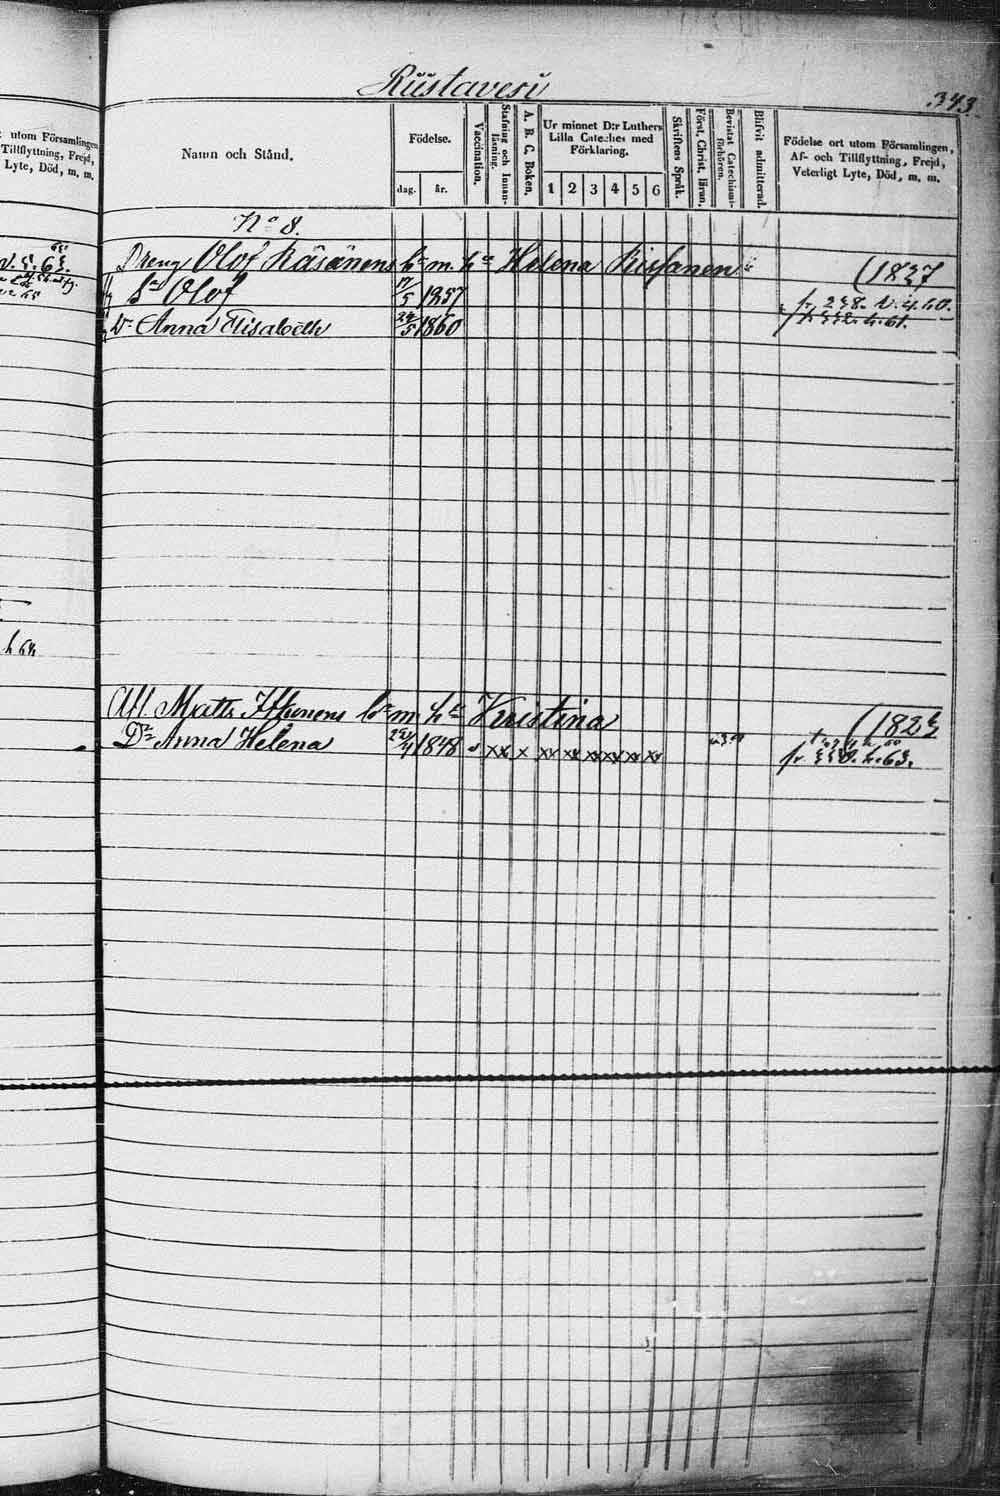 Riistavesi
343.
utom Församlingen
Tillflyttning, Frejd,
Lyte, Död, m. m.
Namn och Stånd.
Födelse.
dag. år.
Vaccination.
Stafning och Innanläsning.
A. B. C. Boken.
Ur minnet D:r Luthers
Lilla Cateches med
Förklaring.
1 2 3 4 5 6
Skriftens Språk.
Först. Christ. läran.
Bevistat Catechismiförhören.
Blifvit admitterad.
Födelse ort utom Församlingen,
Af- och Tillflyttning, Frejd,
Veterligt Lyte, Död, m. m.
No 8.
Dreng Olof Räsänens m. Helena (1827
Sn Olof 17/5 1857 fr. 238.
Dr Anna Elisabeth 24/5 1860
h 64
Afl Matts m. Kristina (1823
Dr Anna Helena 1848 xx x xx xx xx xx xx xx